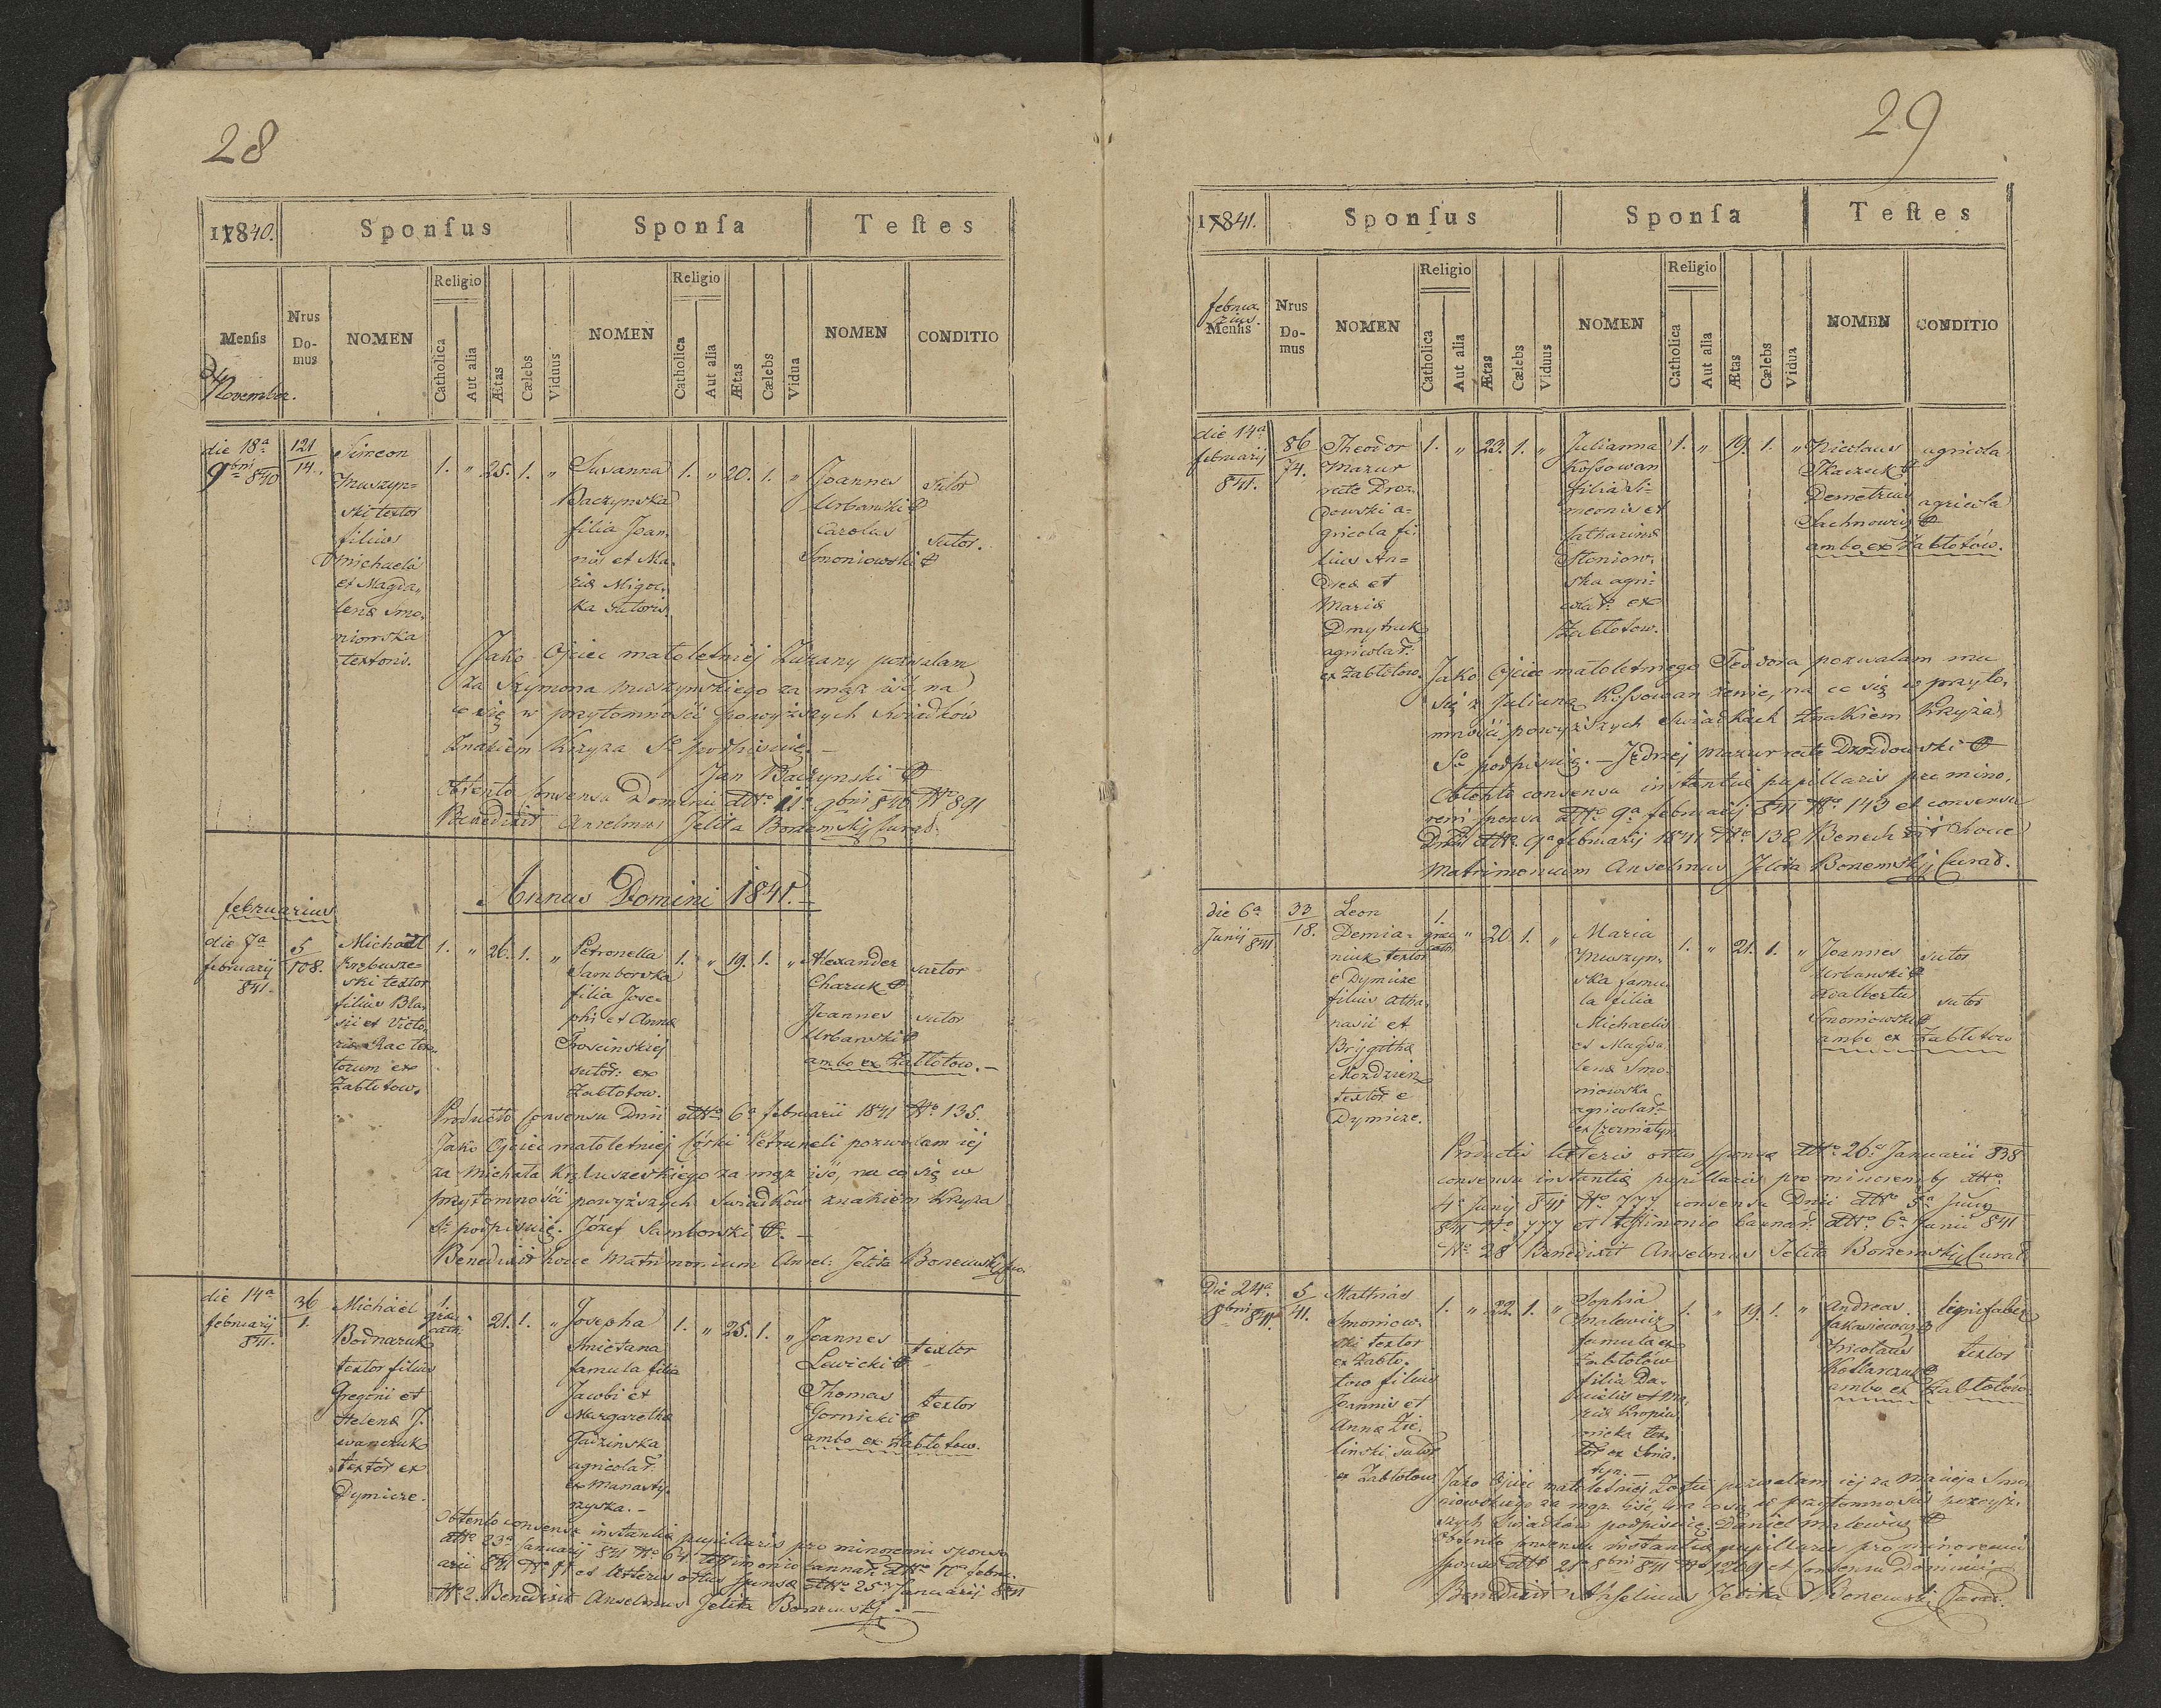 28
1840.
Sponſus
Sponſa
Teſtes
Menſis
9br
November.
Nrus
Domus
NOMEN
Religio
Catholica
Aut alia
Ætas
Cælebs
Viduus
NOMEN
Religio
Catholica
Aut alia
Ætas
Cælebs
Vidua
NOMEN
CONDITIO
die 18ª
9bris 840
121
14.
Simeon
Muszyn=
ski textor
filius
Michaelis
et Magda-
lenæ Smo-
niowska
textoris.
1. " 25. 1. "
Susanna
Baczynska
filia Joan-
nis et Ma-
riæ Migoc-
ka sutoris
1. " 20. 1. "
Joannes
Urbanski
Carolus
Smoniowski
sutor
sutor.
Jako Ojciec małoletniej Zuzany pozwalam
za Szymona Muszynskiego za mąż iść, na
co się w przytomności powyższych swiadków
Znakiem Krzyża S° podpisuię. —
Jan Baczynski
Obtento Consensu Dominii dtto 11ª 9bris 840 Nº 891
Benedixit Anselmus Jelita Borzemskij Curat.
Annus Domini 1841.
februarius
die 7ª
februarij
841.
5
108.
Michael
Krzbusze=
ski textor
filius Bla-
sii et Victo-
riæ Rac tex-
torum ex
Zabłotow.
1. " 26. 1. "
Petronella
Samborska
filia Jose-
phi et Annæ
Troscinskiej
sutor: ex
Zabłotow.
1. " 19. 1. "
Alexander
Charuk
Joannes
Urbanski
ambo ex Zabłotow. —
sartor
sutor
Producto Consensu Dnii dtto 6ª februarii 1841 Nº 135.
Jako Ojciec małoletniej Córki Petruneli pozwolam iej
za Michała Krzbuszeskiego za mąż iść, na co się w
przytomności powyższych swiadków znakiem Krzyża
S° podpisuię. Józef Samborski. —
Benedixit hocce Matrimonium Ansel: Jelita Borzemskij
die 14ª
februarij
841.
36
1.
Michael
Bodnaruk
textor filius
Gregorii et
Helenæ J-
wanczuk
textor ex
Dymicze.
1.
græc
cath:
21. 1. "
Josepha
Smietana
famula filia
Jacobi et
Margarethæ
Gadzinska
agricolar:
ex Manasty-
rzyska. —
1. " 25. 1. "
Joannes
Lewicki
Thomas
Gornicki
ambo ex Zabłotow.
textor
textor
Obtento consensu instantiæ pupillaris pro minorenni sponso
dtto 23ª Januarij 841 Nº 61 testimonio bannar: dtto februarii
841 Nº et litteris ortus sponsæ dtto 25ª Januarij 841
Nº 2. Benedixit Anselmus Jelita Borzemskij. —
29
1841.
Sponſus
Sponſa
Teſtes
februa-
rius.
Menſis
Nrus
Do-
mus
NOMEN
Religio
Catholica
Aut alia
Ætas
Cælebs
Viduus
NOMEN
Religio
Catholica
Aut alia
Ætas
Cælebs
Vidua
NOMEN
CONDITIO
die 14ª
februarij
841.
86
74.
Theodor
Mazur
recte Droz-
dowski a-
gricola fi-
lius An=
dreæ et
Mariæ
Dmytruk
agricolar:
ex Zabłotow.
1. " 23. 1. "
Julianna
Kossowan
filia Si-
meonis et
Catharinæ
Słoniow-
ska agri-
colar: ex
Zabłotow.
1. " 19. 1. "
Nicolaus
Tkaczuk
Demetrius
Sachnowicz
ambo ex Zabłotow.
agricola
agricola
Jako Ojciec małoletniego Teodora pozwalam mu
się z Julianą Kossowan żenić, na co się w przyto-
mności powyższych swiadkach Znakiem Krzyża
S° podpisuię. — Jędrzej Mazur recte Drozdowski
Obtento consensu instantiæ pupillaris pro mino-
reni sponsa dtto 9ª februarij 841 Nº 143 et consensu
Dnii dtto 9ª februarij 1841 Nº 138 Benedixit hocce
Matrimonium Anselmus Jelita Borzemskij Curat.
die 6ª
Junij 841
33
18.
Leon
Demia-
niuk textor
e Dymicze
filius Atha-
nasii et
Brygithæ
Mozdzen
textor: e
Dymicze.
1.
græc
cath:
" 20. 1. "
Maria
Muszyn-
ska famu-
la filia
Michaelis
et Magda-
lenæ Smo-
niowska
agricolar:
ex Czerniatyn
1. " 21. 1. "
Joannes
Urbanski
Adalbertus
Smoniowski
ambo ex Zabłotow
sutor
sutor
Productis litteris ortus sponsæ dtto 26ª Januarii 838
consensu instantiæ pupillaris pro minorenibus dtto
4ª Junij 841 Nº 777 consensu Dnii dtto 5ª Junij
841 Nº 777 et testimonio bannar: dtto 6ª Junii 841
Nº 28 Benedixit Anselmus Jelita Borzemskij Curat.
Die 24ª
8bris 841.
5
41.
Mathias
Smoniow-
ski textor
ex Zabło-
tow filius
Joannis et
Annæ Zie-
linski sutor:
ex Zabłotow
1. " 22. 1. "
Sophia
Malewicz
famula ex
Zabłotow
filia Da-
nielis et Ma-
riæ Kropiw-
nicka tex-
tor: ex Snia-
tyn. —
1. " 19. 1. "
Andreas
Jakowiewicz
Nicolaus
Kotlarczuk
ambo ex Zabłotow.
lignifaber
textor
Jako Ojciec małoletniej Zofii pozwalam iej za Macieja Smo-
niowskiego za mąż iść, na co się w przytomności powyż-
szych swiadków podpisuię. Daniel Malewicz
Obtento consensu instantiæ pupillaris pro minorenni
sponso dtto 21ª 8bris 841 Nº 1269 et consensu Dominii
Benedixit Anselmus Jelita Borzemski Curat.